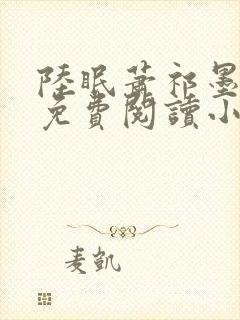 陸眠蕭祁墨
免費閱讀小
麦凯